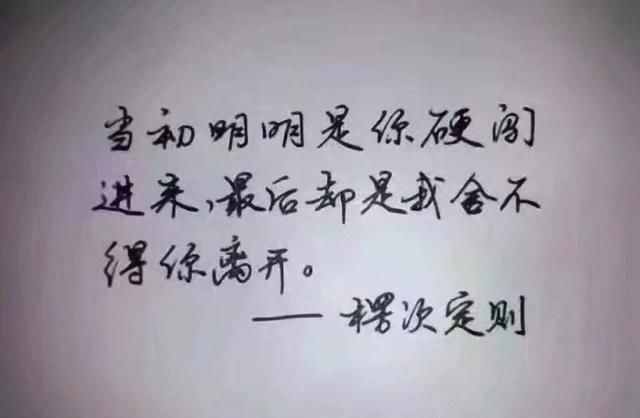 当初明明是你硬闯
进来,最后却是我舍不
得你离开。
—— 楞次定则